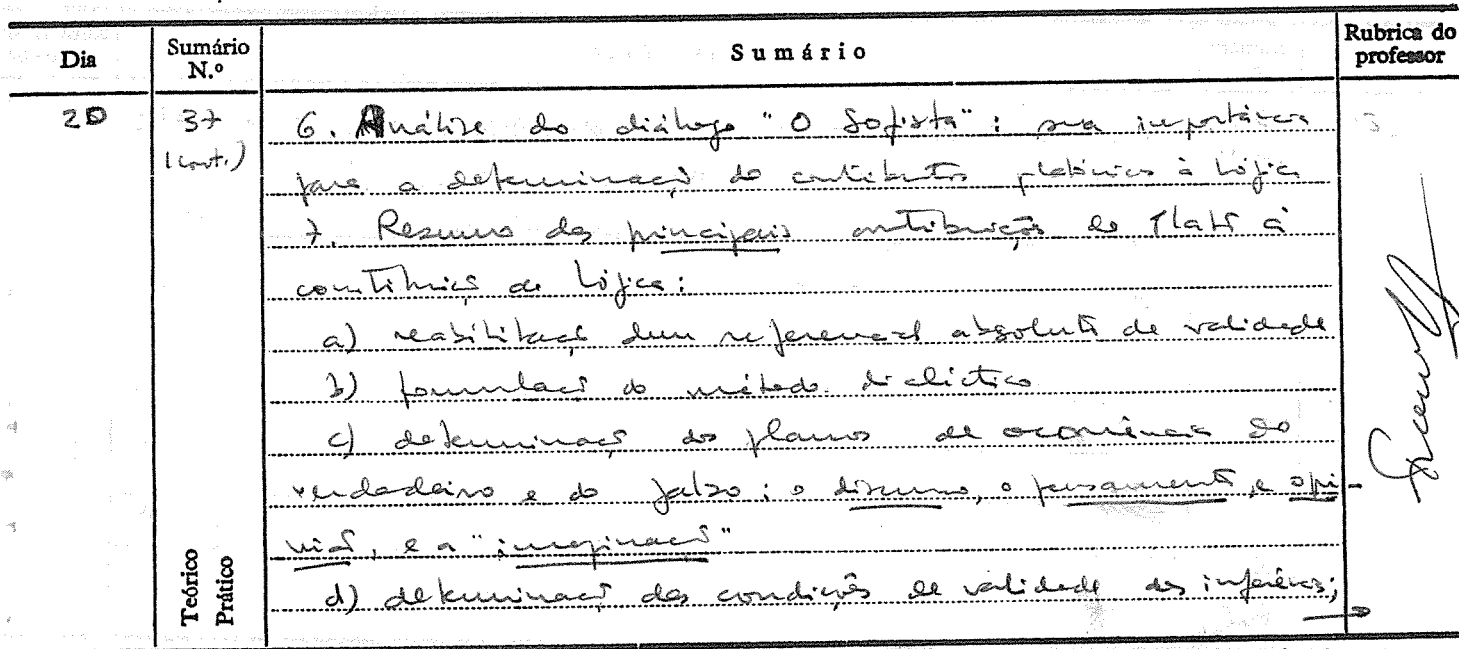 Dia Sumário N.º Sumário Rubrica do professor
20 37 (cont.)
6. Análise do diálogo "O Sofista": sua importância
para a determinação de contributos platónicos à Lógica
7. Resumo das principais contribuições de Platão à
constituição da Lógica:
a) reabilitação dum referencial absoluto de validade
b) formulação do método dialéctico
c) determinação dos planos de ocorrência do
verdadeiro e do falso: o discurso, o pensamento, e opi-
nião, e a "imaginação"
d) determinação das condições de validade das inferências;
Teórico
Prático